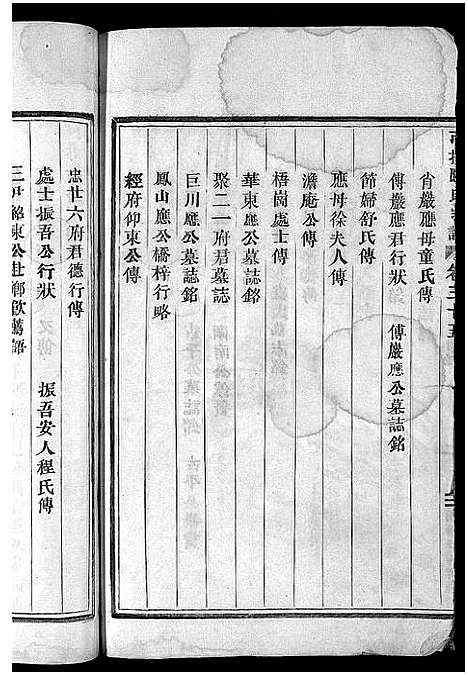 肖巖應母童氏傳
傅巖應君行狀 傅巖應公墓誌銘
節婦舒氏傳
應母徐夫人傳
澹庵公傳
梧崗處士傳
華東應公墓誌銘
聚二一府君墓誌
巨川應公墓誌銘
鳳山應公橋梓行略
經府仰東公傳
忠廿六府君德行傳
處士振吾公行狀 振吾安人程氏傳